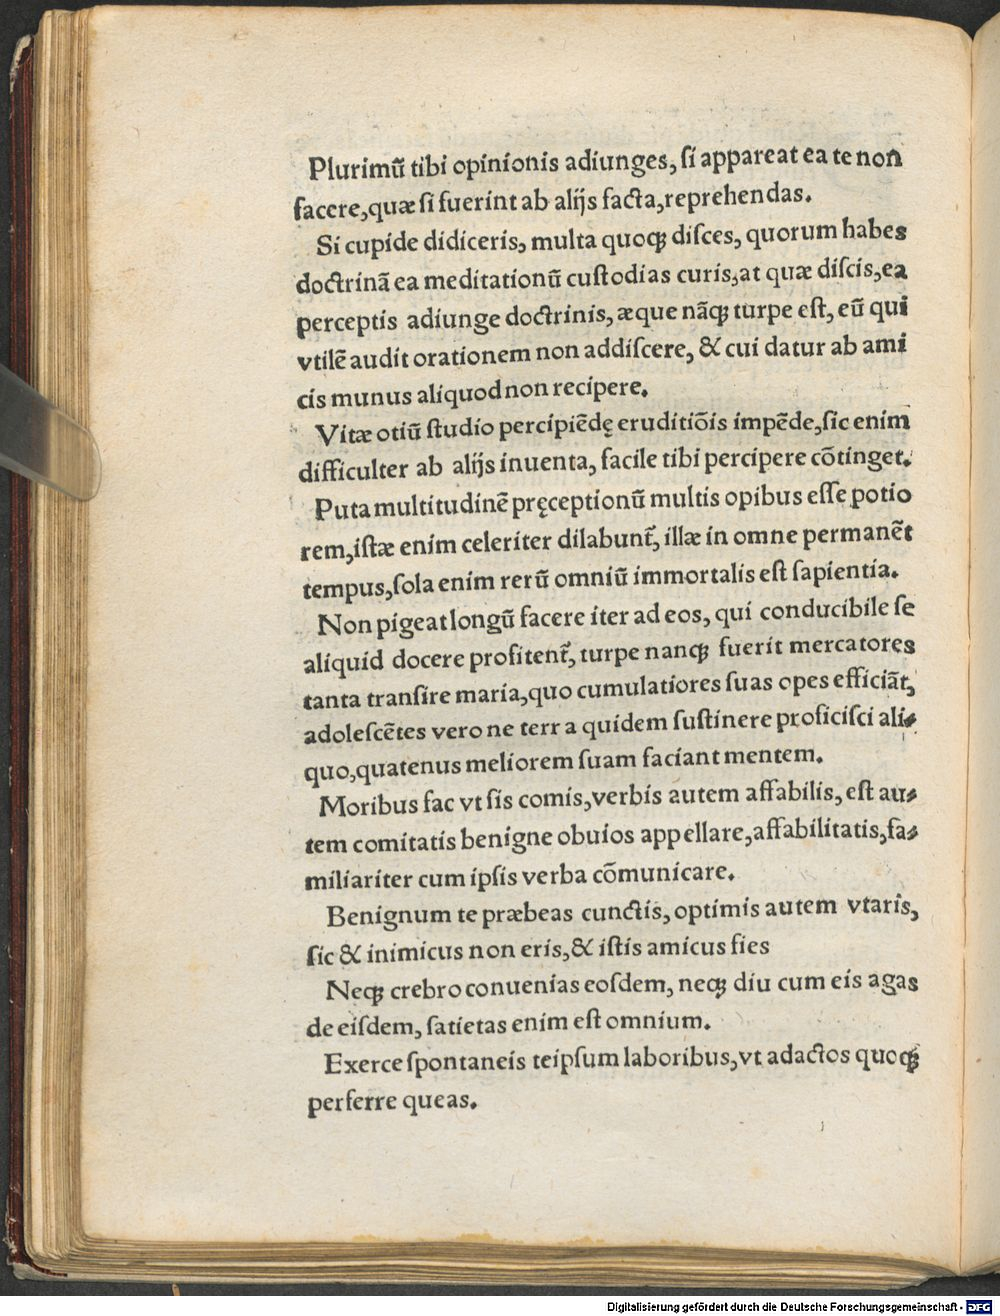 Plurimũ tibi opinionis adiunges, ſi appareat ea te non
facere,quæ ſi fuerint ab alijs facta,reprehendas.
Si cupide didiceris, multa quoqꝫ diſces, quorum habes
doctrinã ea meditationũ cuſtodias curis,at quæ diſcis,ea
perceptis adiunge doctrinis, æque nãqꝫ turpe eſt, eũ qui
vtilẽ audit orationem non addiſcere, & cui datur ab ami
cis munus aliquod non recipere.
Vitæ otiũ ſtudio percipiẽdę eruditiõis impẽde,ſic enim
difficulter ab alijs inuenta, facile tibi percipere cõtinget.
Puta multitudinẽ pręceptionũ multis opibus eſſe potio
rem,iſtæ enim celeriter dilabunt᷑, illæ in omne permanẽt
tempus,ſola enim rerũ omniũ immortalis eſt ſapientia.
Non pigeat longũ facere iter ad eos, qui conducibile ſe
aliquid docere profitent᷑, turpe nanqꝫ fuerit mercatores
tanta tranſire maria,quo cumulatiores ſuas opes efficiãt,
adoleſcẽtes vero ne terr a quidem ſuſtinere proficiſci ali⸗
quo,quatenus meliorem ſuam faciant mentem.
Moribus fac vt ſis comis,verbis autem affabilis, eſt au⸗
tem comitatis benigne obuios appellare,affabilitatis,fa⸗
miliariter cum ipſis verba cõmunicare.
Benignum te præbeas cunctis, optimis autem vtaris,
ſic & inimicus non eris,& iſtis amicus fies
Neqꝫ crebro conuenias eoſdem, neqꝫ diu cum eis agas
de eiſdem, ſatietas enim eſt omnium.
Exerce ſpontaneis teipſum laboribus,vt adactos quoqꝫ
perferre queas.
Digitalisierung gefördert durch die Deutsche Forschungsgemeinschaft - DFG